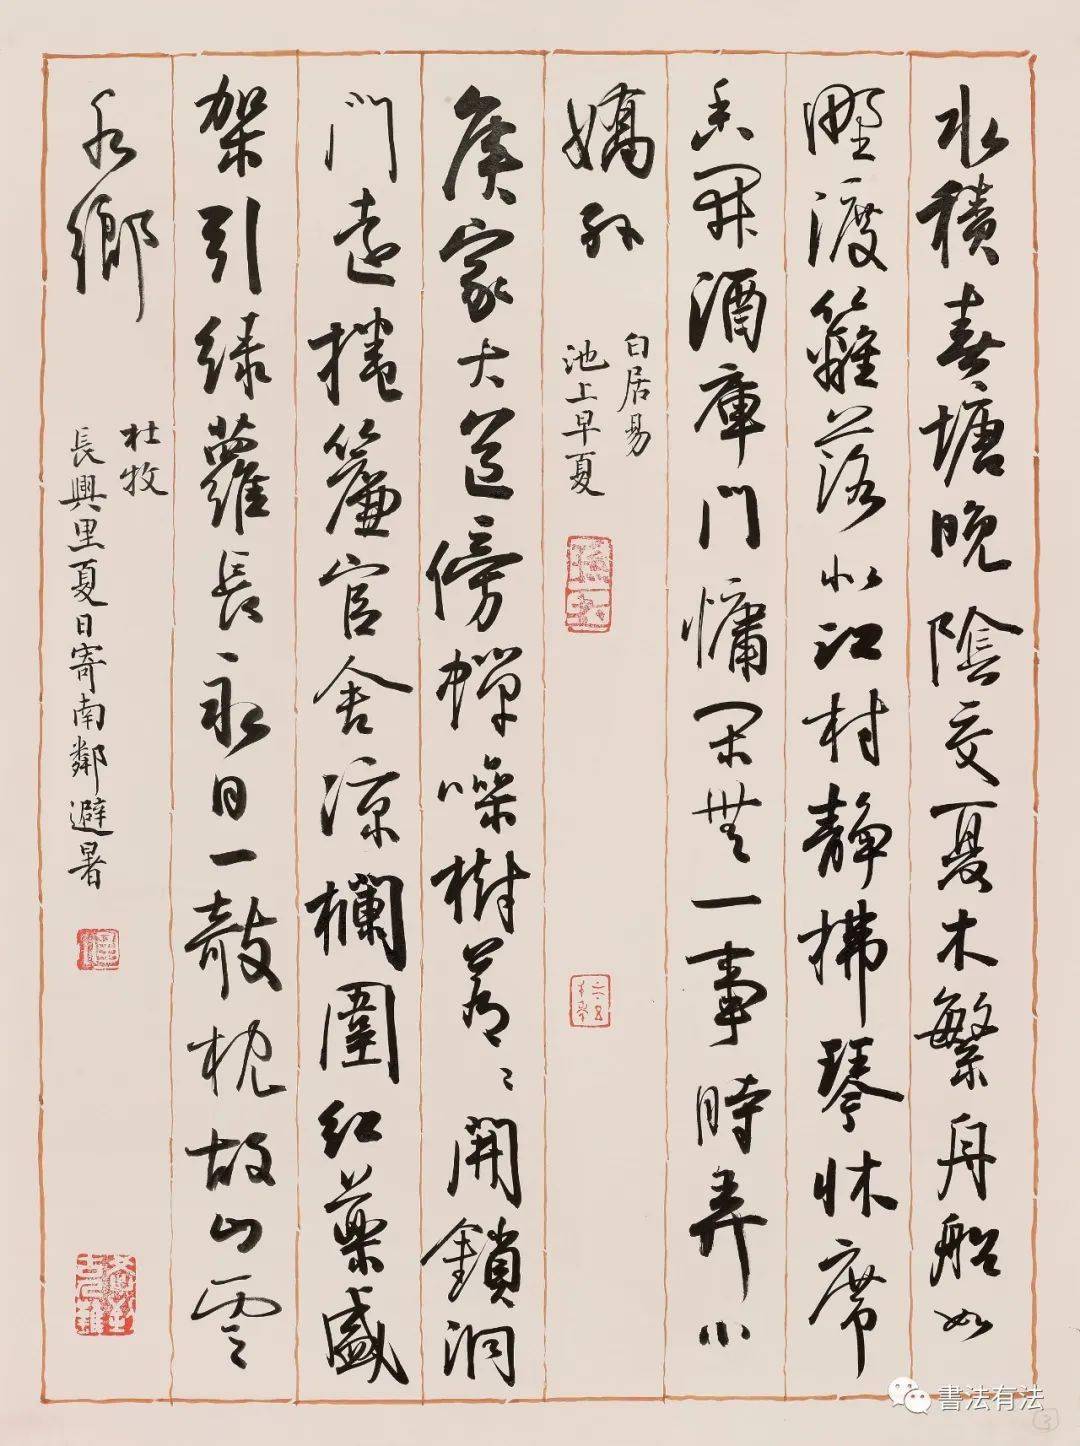 水積春塘晚陰交夏木繁舟船如
野渡籬落似江村靜拂琴牀席
香開酒庫門慵閑無一事時弄小
嬌孫
白居易
池上早夏
侯家大道傍蟬噪樹蒼〻開鎖洞
門遠捲簾官舍涼欄圍紅藥盛
架引綠蘿長永日一欹枕故山雲
水鄉
杜牧
長興里夏日寄南鄰避暑
書法有法